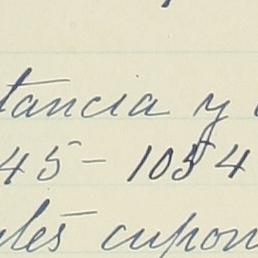 tancia y
45 - 1054
les cupon